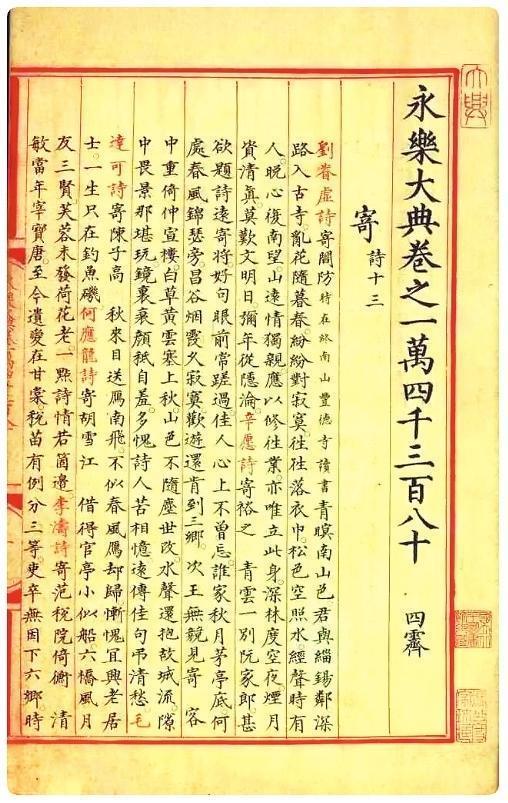 永樂大典卷之一萬四千三百八十 四霽
寄 詩十三
劉眷虛詩寄閻防時在終南山豐德寺讀書青暝南山邑君與緇錫鄰深
路入古寺亂花隨暮春紛紛對寂寞往往落衣巾松色空照水經聲時有
人晚心復南望山遠情獨親應以修往業亦唯立此身深林度空夜煙月
資清真莫歎文明日彌年從隱淪辛愿詩寄裕之 青雲一別阮家郎甚
欲題詩遠寄將好句眼前常蹉過佳人心上不曾忘誰家秋月茅亭底何
處春風錦瑟旁昌谷烟霞久寂寞歡遊還肯到三鄉 次王無競見寄 客
中重倚仲宣樓白草黃雲塞上秋山色不隨塵世改水聲還抱故城流隙
中畏景那堪玩鏡裏衰顏祇自羞多愧詩人苦相憶遠傳佳句弔清愁毛
達可詩寄陳子高 秋來目送鴈南飛不似春風鴈却歸慚愧宜興老居
士一生只在釣魚磯何應龍詩寄胡雪江 借得官亭小似船六橋風月
友三賢芙蓉未發荷花老一點詩情若箇邊李濤詩寄范稅院倚衡 清
敏當年宰寶唐至今遺愛在甘棠稅苗有例分三等吏卒無因下六鄉時